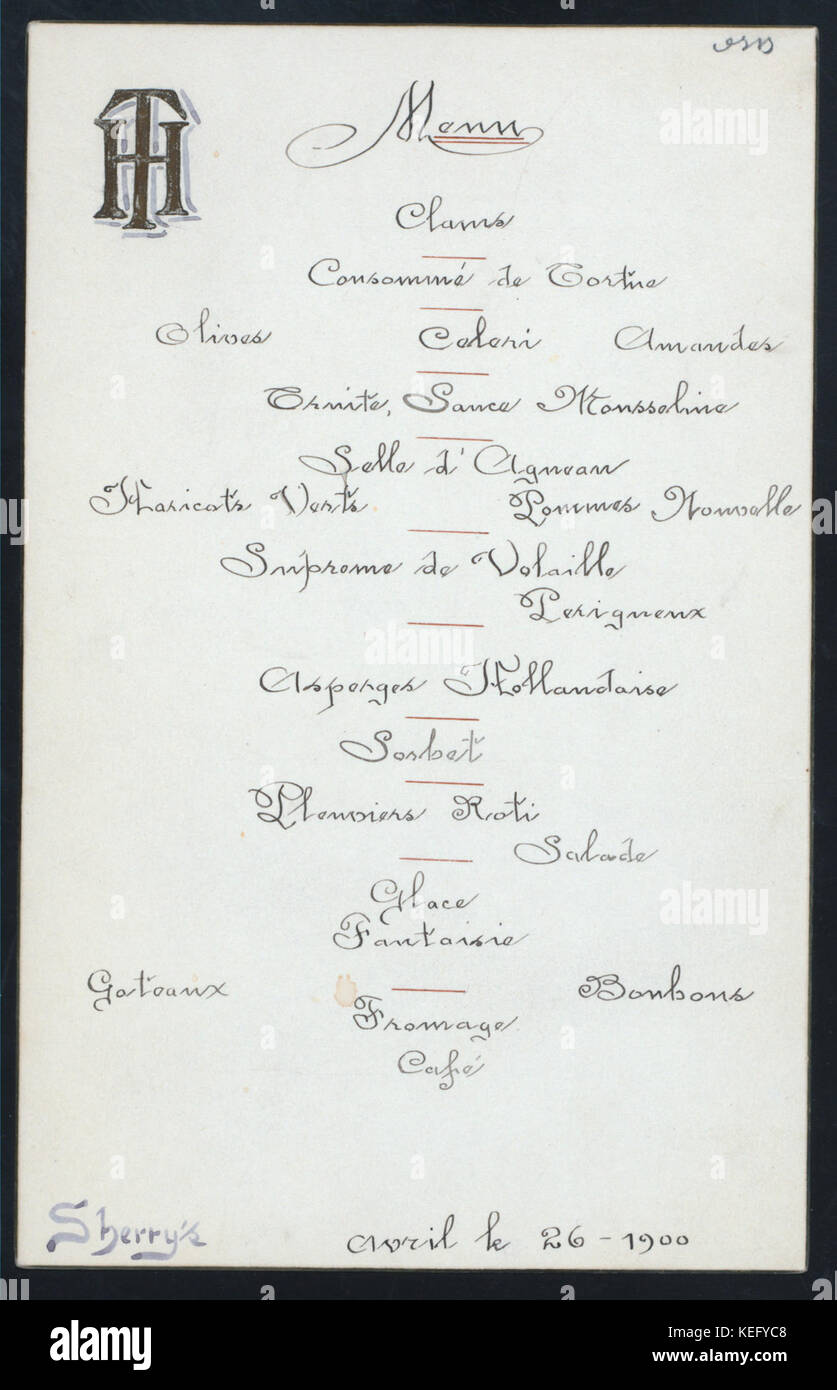 TH
Menu
Clams
Consommé de Tortue
Olives Celeri Amandes
Truite, Sauce Mousseline
Selle d'Agneau
Haricots Verts Pommes Nouvelle
Supreme de Volaille
Perigueux
Asperges Hollandaise
Sorbet
Pleuviers Roti
Salade
Glace
Fantaisie
Gateaux Bonbons
Fromage
Café
Sherry's Avril le 26 - 1900
alamy
alamy
alamy
alamy
a
a
a
a
alamy
Image ID: KEFYC8
www.alamy.com